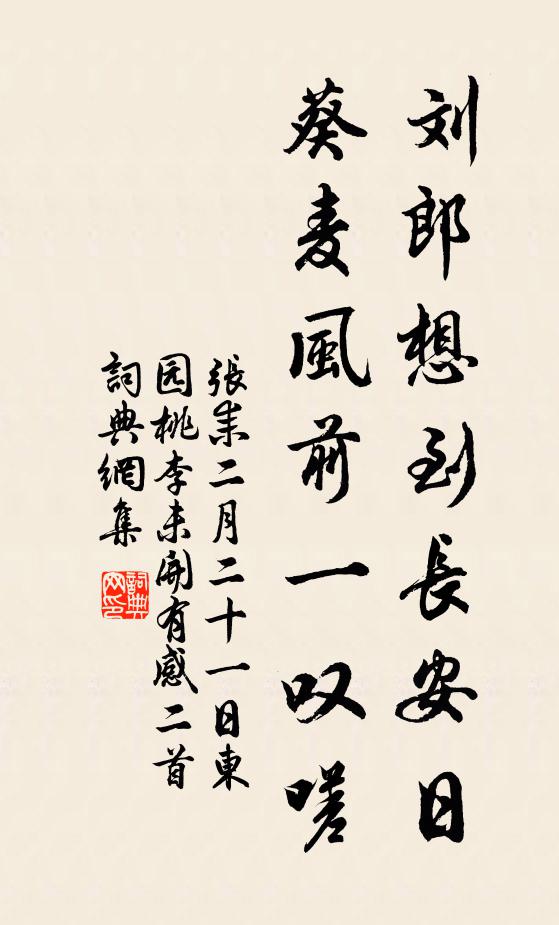 刘郎想到長安日
葵麦風前一叹嗟
張耒二月二十一日東
园桃李未開有感二首
詞典網集
詞典
网印